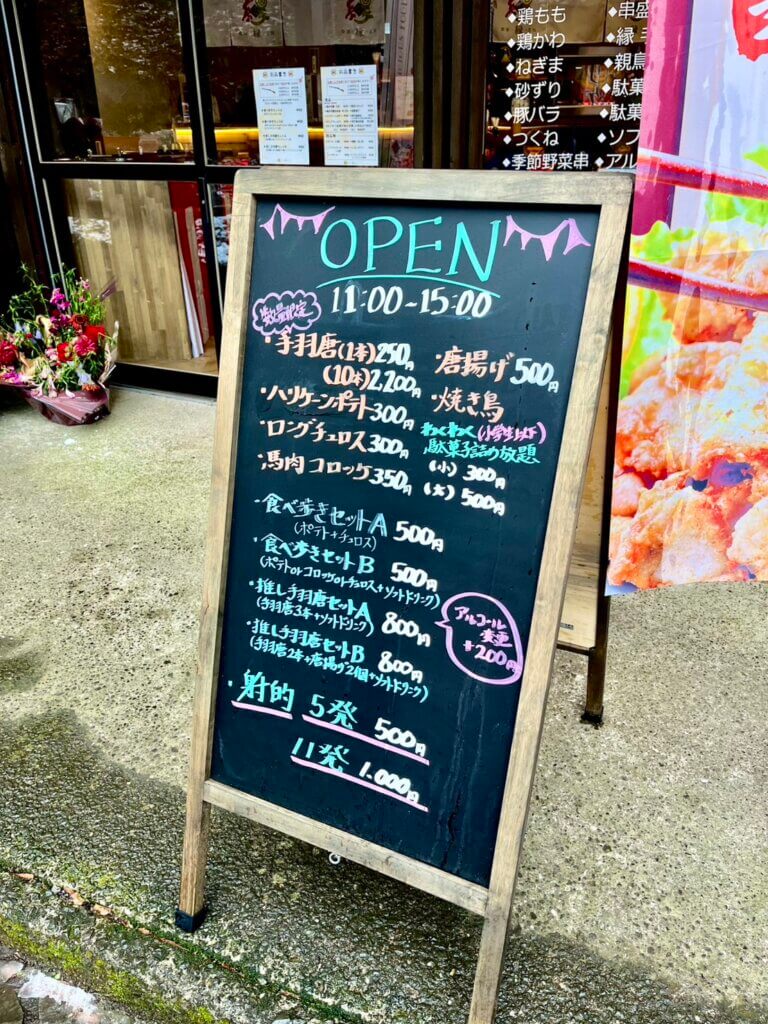 鶏もも
鶏かわ
ねぎま
砂ずり
豚バラ
つくね
季節野菜串
串盛
縁手
親鳥
駄菓
駄菓
ソフ
アル
OPEN
11:00~15:00
数量限定
・手羽唐(1本)250円
(10本)2,200円
・ハリケーンポテト300円
・ロングチュロス300円
・馬肉コロッケ350円
・唐揚げ500円
・焼き鳥
わくわく(小学生以下)
駄菓子詰め放題
(小)300円
(大)500円
・食べ歩きセットA 500円
(ポテト+チュロス)
・食べ歩きセットB 500円
(ポテトorコロッケorチュロス+ソフトドリンク)
・推し手羽唐セットA 800円
(手羽唐3本+ソフトドリンク)
・推し手羽唐セットB 800円
(手羽唐2本+唐揚げ2個+ソフトドリンク)
アルコール
変更
+200円
・射的 5発 500円
11発 1,000円